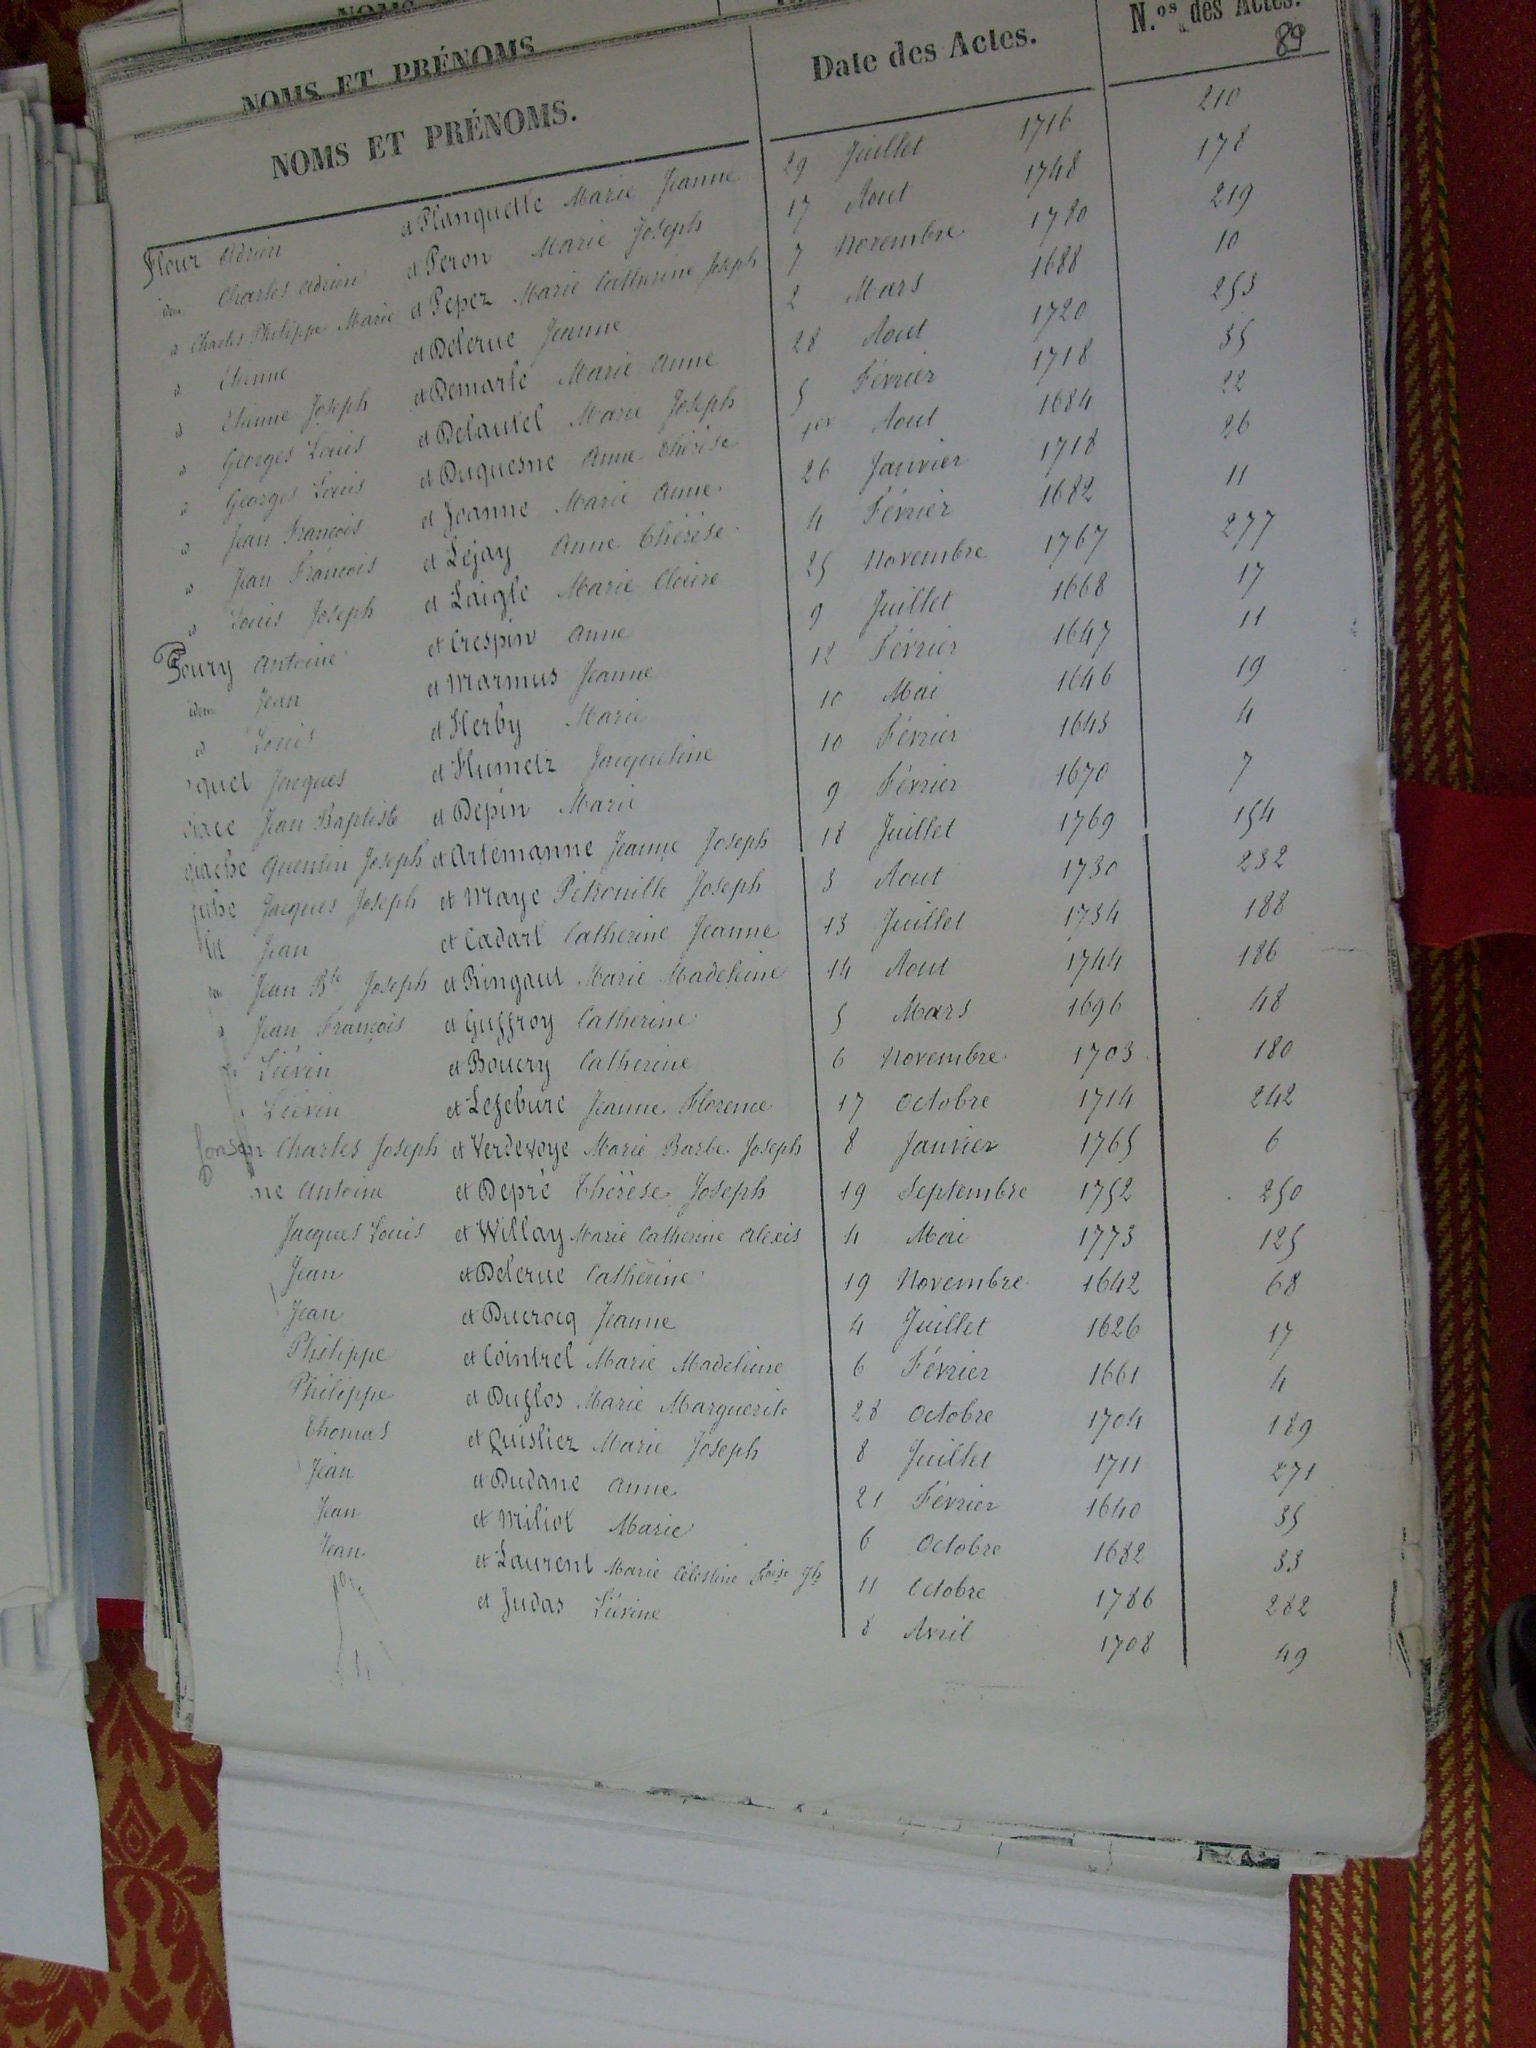 NOMS
NOMS ET PRÉNOMS
NOMS ET PRÉNOMS. Date des Actes. N.os des Actes.
89
Fleur Adrien et Planquette Marie Jeanne 29 Juillet 1716 210
idem Charles Adrien et Peron Marie Joseph 17 Aout 1748 178
d Charles Philippe Marie et Pepez Marie Catherine Joseph 7 Novembre 1780 219
d Etienne et Delerue Jeanne 2 Mars 1688 10
d Etienne Joseph et Demarle Marie Anne 28 Aout 1720 253
d Georges Louis et Delautel Marie Joseph 5 Février 1718 35
d Georges Louis et Duquesne Anne Thérèse 1er Aout 1684 22
d Jean François et Jeanne Marie Anne 26 Janvier 1718 26
d Jean François et Lejay Anne Thérèse 4 Février 1682 11
d Louis Joseph et Laigle Marie Claire 25 Novembre 1767 277
Fleury Antoine et Crespin Anne 9 Juillet 1668 17
idem Jean et Marmus Jeanne 12 Février 1647 11
d Louis et Herby Marie 10 Mai 1646 19
quet Jacques et Flumetz Jacqueline 10 Février 1643 4
Jean Baptiste et Depin Marie 9 Février 1670 7
Quentin Joseph et Artemanne Jeanne Joseph 18 Juillet 1769 154
Jacques Joseph et Maye Pétronille Joseph 3 Aout 1730 232
Jean et Cadart Catherine Jeanne 13 Juillet 1734 188
Jean Bte Joseph et Ringaut Marie Madeleine 14 Aout 1744 186
d Jean François et Guffroy Catherine 5 Mars 1696 48
Liévin et Boucry Catherine 6 Novembre 1703 180
Liévin et Lefebure Jeanne Florence 17 Octobre 1714 242
Charles Joseph et Verdevoye Marie Barbe Joseph 8 Janvier 1765 6
ne Antoine et Depré Thérèse Joseph 19 Septembre 1752 250
Jacques Louis et Willay Marie Catherine Alexis 4 Mai 1773 125
Jean et Delerue Catherine 19 Novembre 1642 68
Jean et Ducrocq Jeanne 4 Juillet 1626 17
Philippe et Cointrel Marie Madeleine 6 Février 1661 4
Philippe et Duflos Marie Marguerite 28 Octobre 1704 189
Thomas et Quisliez Marie Joseph 8 Juillet 1711 271
Jean et Dudane Anne 21 Février 1640 35
Jean et Miliot Marie 6 Octobre 1682 33
Jean et Laurent Marie Célestine Foise Jh 11 Octobre 1786 282
et Judas Liévine 8 Avril 1708 49